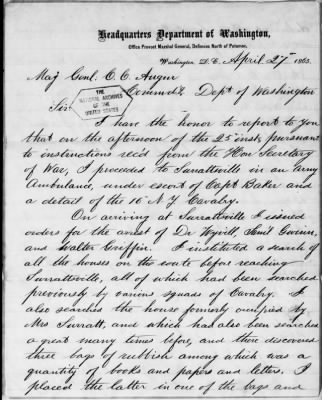 Headquarters Department of Washington,
Office Provost Marshal General, Defences North of Potomac,
Washington D.C. April 27th 1865.
Maj Genl. C. C. Augur
Commdg Dept of Washington
Sir
THE
NATIONAL ARCHIVES
OF THE
UNITED STATES
I have the honor to report to you
that on the afternoon of the 25 inst, pursuant
to instructions recd from the Hon Secretary
of War, I proceeded to Surrattsville in an Army
Ambulance, under escort of Capt Baker and
a detail of the 16 N.Y. Cavalry.
On arriving at Surrattsville I issued
orders for the arrest of Dr
and Walter Griffin. I instituted a search of
all the houses on the route before reaching
Surrattsville, all of which had been searched
previously by various squads of Cavalry. I
also searched the house formerly occupied by
Mrs Surratt, and which had also been searched
a great many times before, and there discovered
three bags of rubbish among which was a
quantity of books and papers and letters. I
placed the latter in one of the bags and